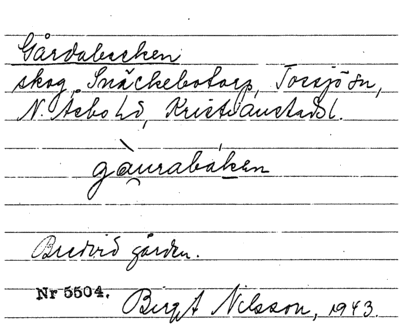 Gårdabacken
skog, Snäckebotorp, Tossjö sn,
N. Åsbo hd, Kristianstads l.
gàurabák̲en
Bredvid gården.
Nr 5504.
Birgit Nilsson, 1943.